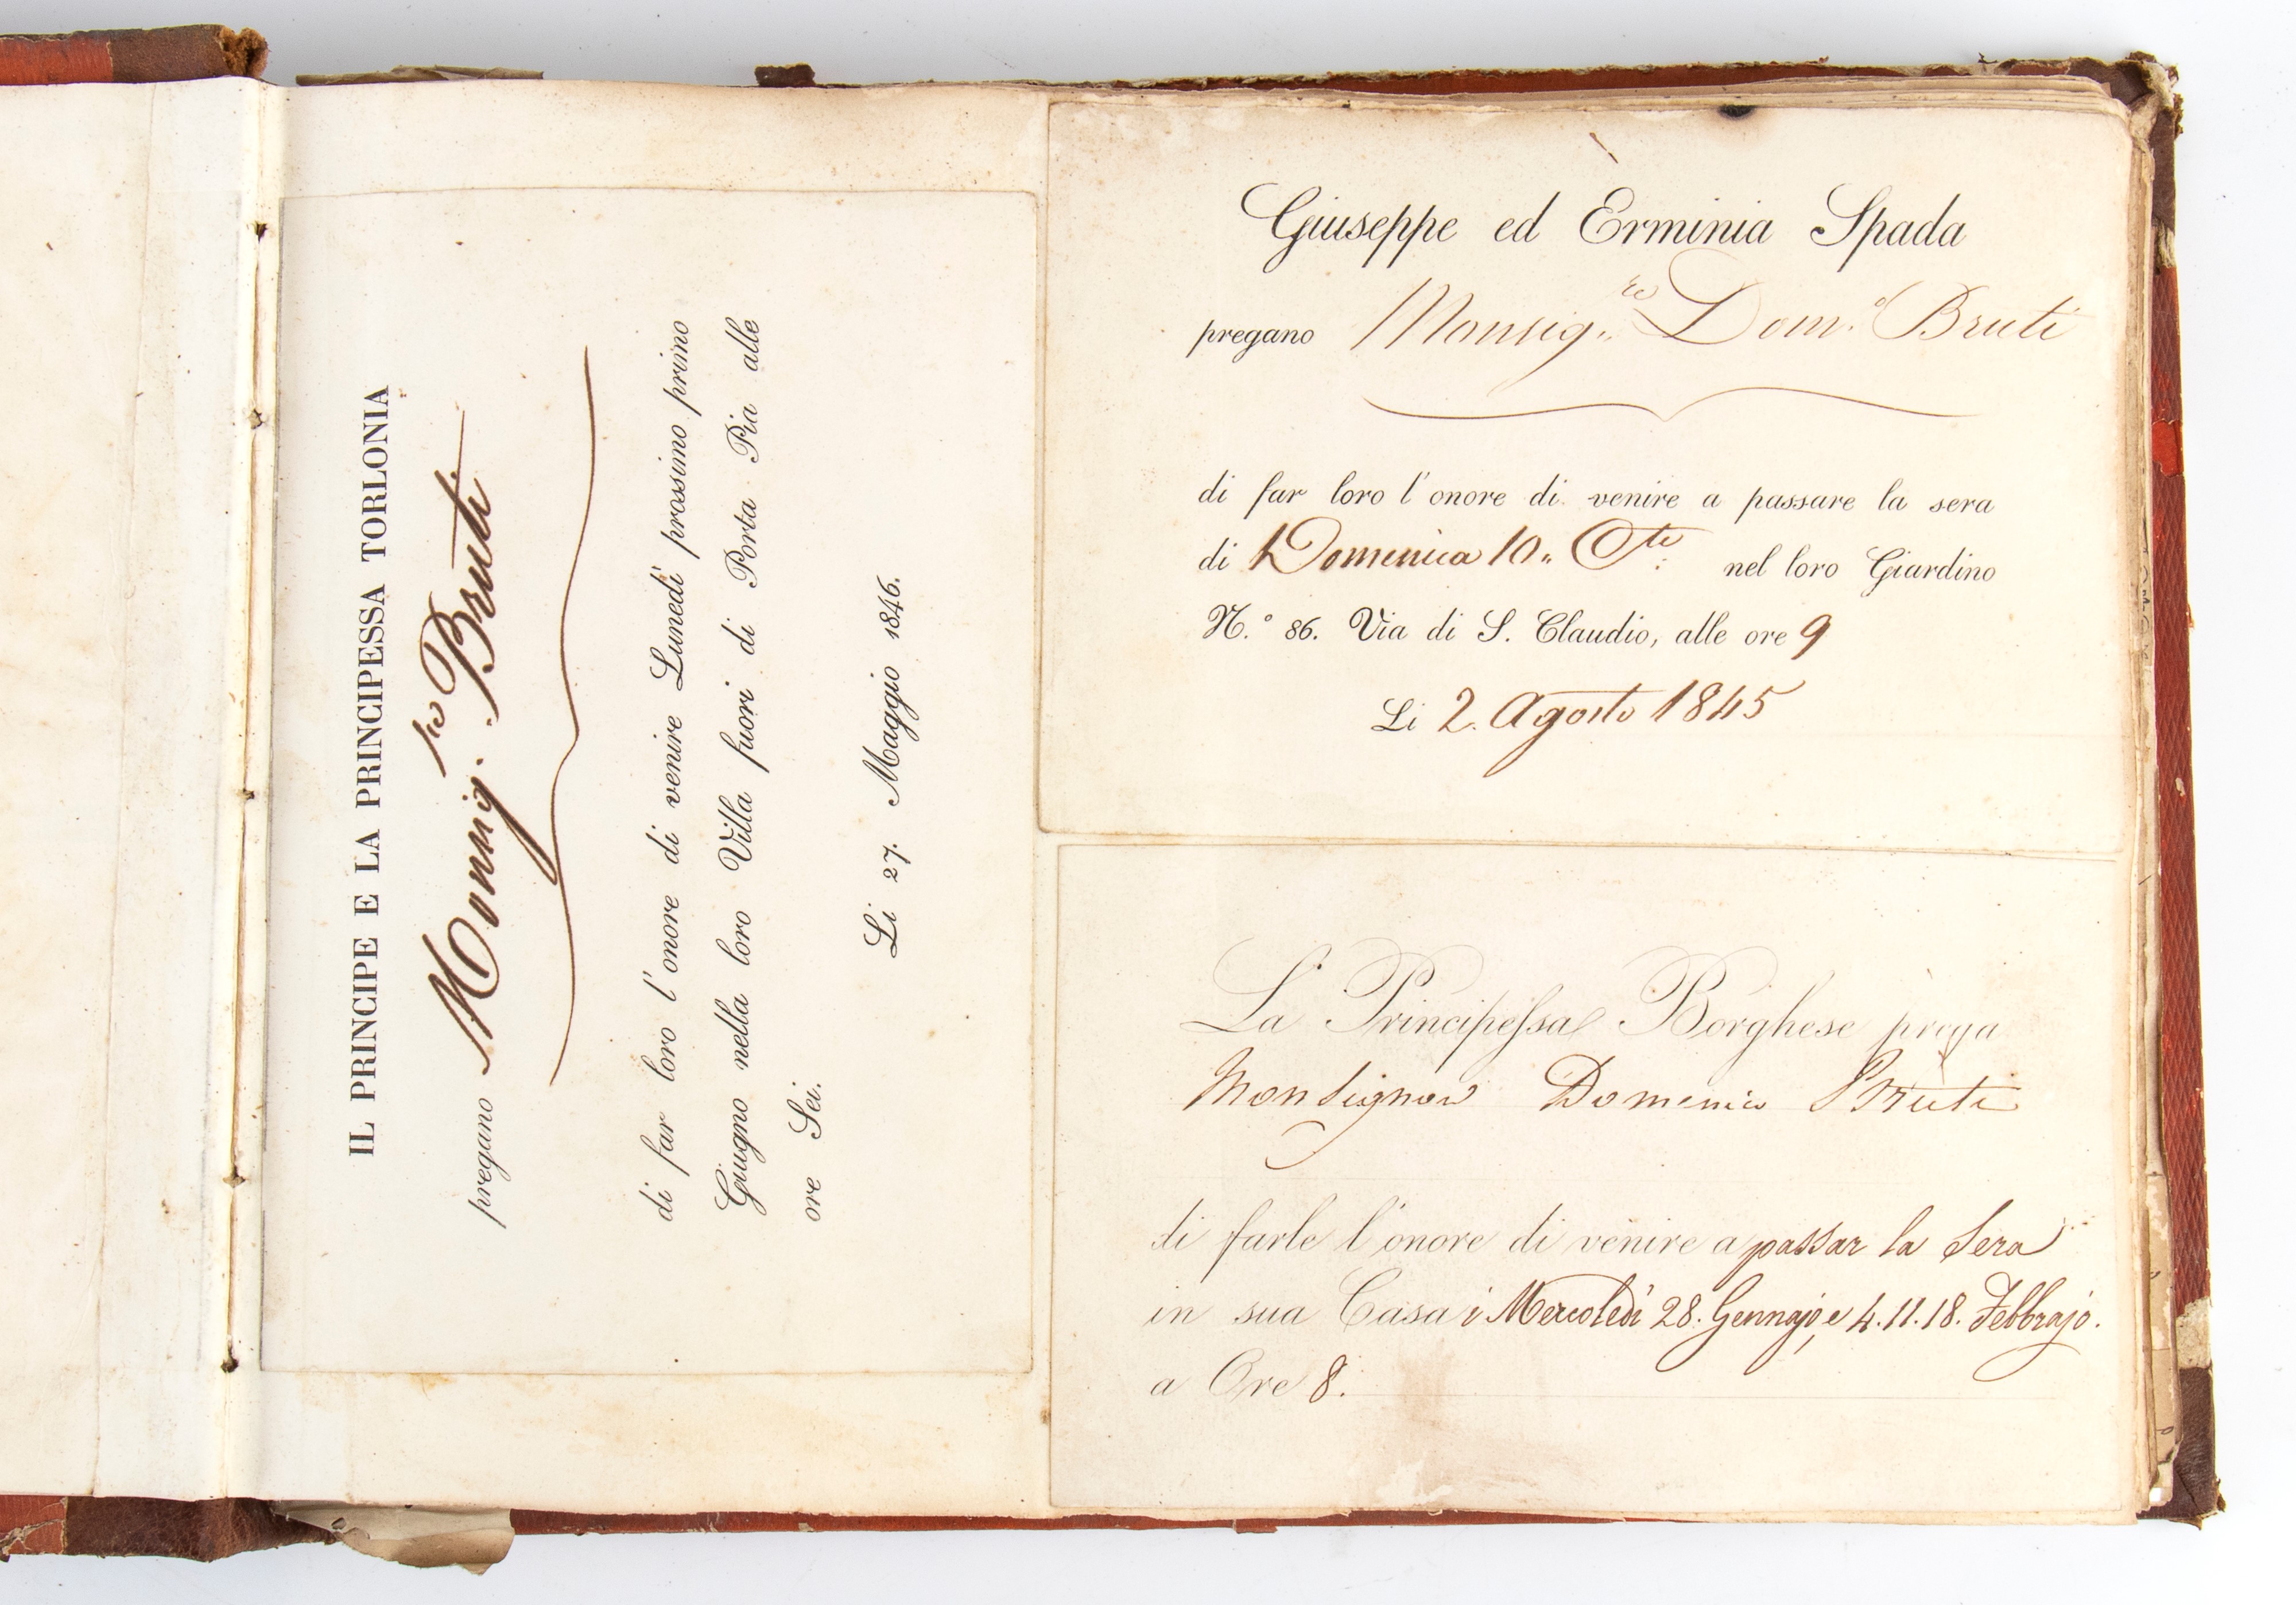 IL PRINCIPE E LA PRINCIPESSA TORLONIA
pregano Monsig.re Bruti
di far loro l'onore di venire Lunedì prossimo primo
Giugno nella loro Villa fuori di Porta Pia alle
ore Sei.
Li 27. Maggio 1846.
Giuseppe ed Erminia Spada
pregano Monsig.re Dom.o Bruti
di far loro l'onore di venire a passare la sera
di Domenica 10. C.te nel loro Giardino
N.° 86. Via di S. Claudio, alle ore 9
Li 2. Agosto 1845
La Principessa Borghese prega
Monsignor Domenico Bruti
di farle l'onore di venire a passar la Sera
in sua Casa i Mercoledì 28. Gennajo, e 4. 11. 18. Febbrajo.
a Ore 8.